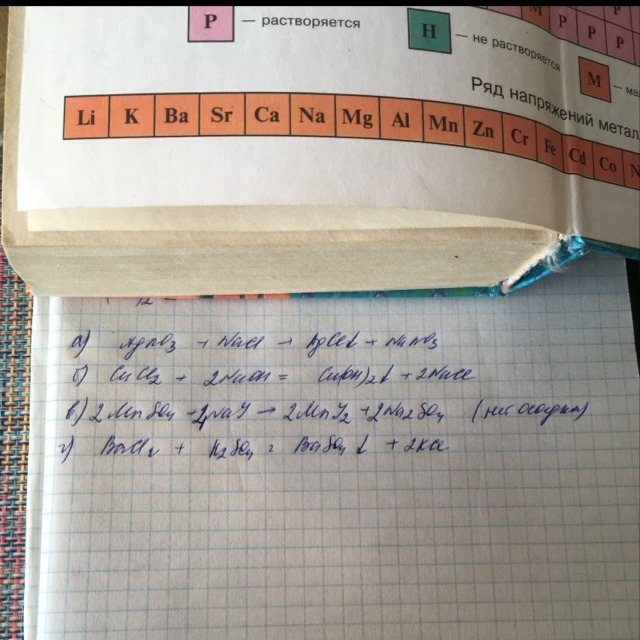 P — растворяется
H — не растворяется
M
M P P
P P P
Ряд напряжений метал
Li K Ba Sr Ca Na Mg Al Mn Zn Cr Fe Cd Co N
12
а) AgNO3 + NaCl → AgCl↓ + NaNO3
б) CuCl2 + 2NaOH = Cu(OH)2↓ + 2NaCl
в) 2MnSO4 + 4NaI → 2MnI2 + 2Na2SO4 (нет осадка)
г) BaCl2 + K2SO4 = BaSO4↓ + 2KCl